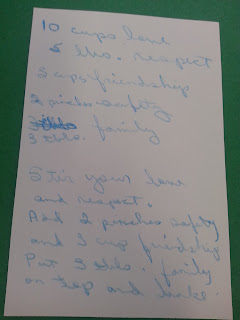 10 cups love
5 tbs. respect
3 cups friendship
2 pinches safety
family
3 tbls.
Stir your love
and respect.
Add 2 pinches safety
and 3 cup friendship
Put 3 tbls. family
on top and bake.